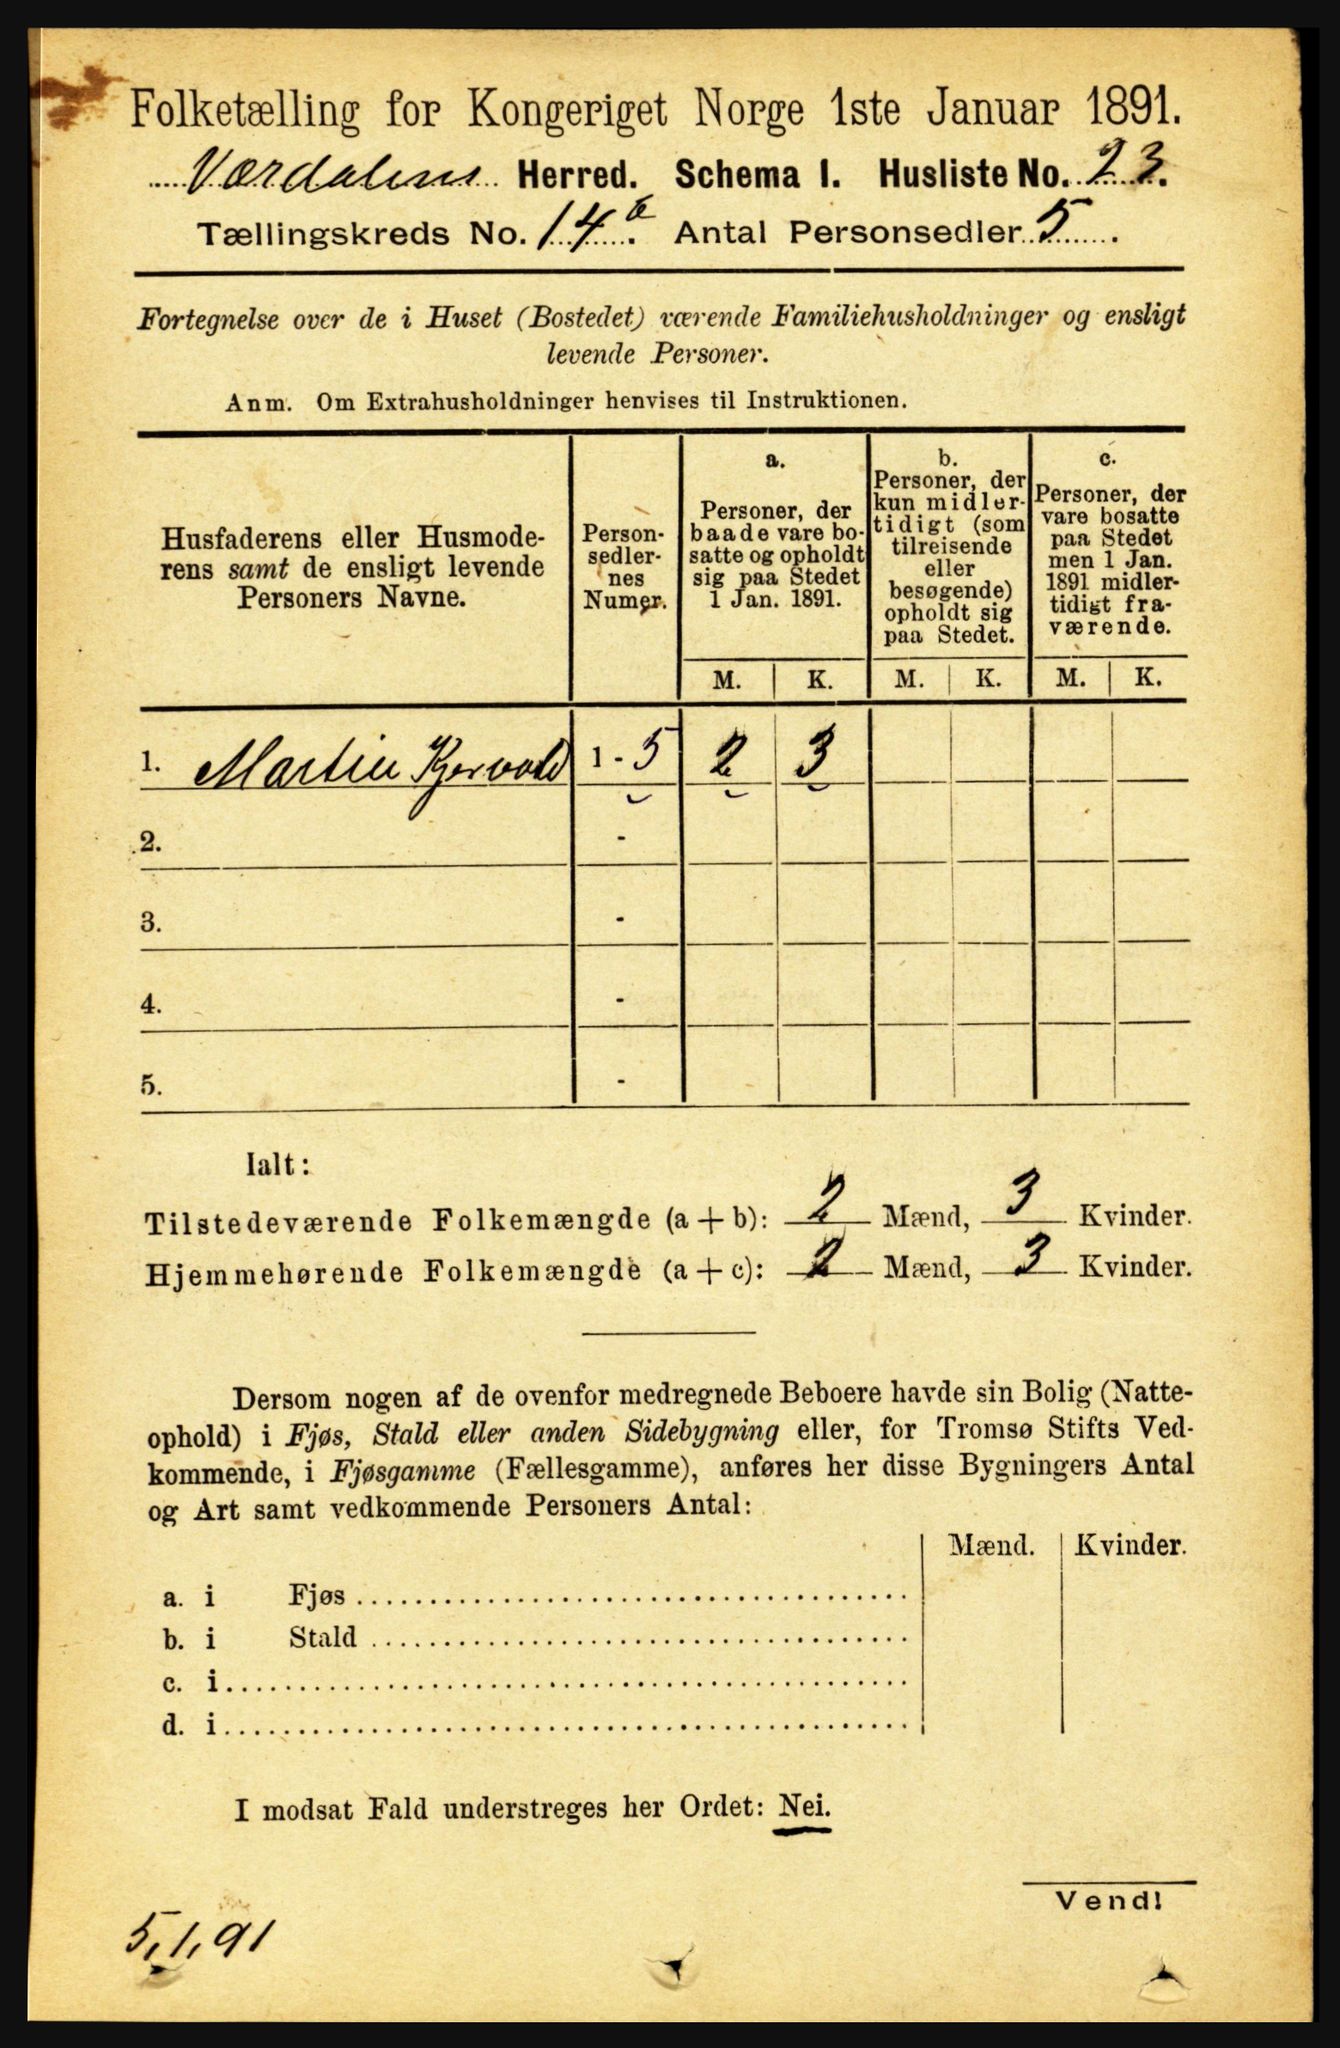 Folketælling for Kongeriget Norge 1ste Januar 1891.
Værdalens Herred. Schema I. Husliste No. 23.
Tællingskreds No. 14 b. Antal Personsedler 5.
Fortegnelse over de i Huset (Bostedet) værende Familiehusholdninger og ensligt
levende Personer.
Anm. Om Extrahusholdninger henvises til Instruktionen.
Husfaderens eller Husmode-
rens samt de ensligt levende
Personers Navne.
Person-
sedler-
nes
Numer.
a.
Personer, der
baade vare bo-
satte og opholdt
sig paa Stedet
1 Jan. 1891.
b.
Personer, der
kun midler-
tidigt (som
tilreisende
eller
besøgende)
opholdt sig
paa Stedet.
c.
Personer, der
vare bosatte
paa Stedet
men 1 Jan.
1891 midler-
tidigt fra-
værende.
M. K. M. K. M. K.
1. Martin Kjervold 1 - 5 2 3
2. -
3. -
4. -
5. -
Ialt:
Tilstedeværende Folkemængde (a + b): 2 Mænd, 3 Kvinder.
Hjemmehørende Folkemængde (a + c): 2 Mænd, 3 Kvinder.
Dersom nogen af de ovenfor medregnede Beboere havde sin Bolig (Natte-
ophold) i Fjøs, Stald eller anden Sidebygning eller, for Tromsø Stifts Ved-
kommende, i Fjøsgamme (Fællesgamme), anføres her disse Bygningers Antal
og Art samt vedkommende Personers Antal:
Mænd. Kvinder.
a. i Fjøs
b. i Stald
c. i
d. i
I modsat Fald understreges her Ordet: Nei.
Vend!
5,1,91